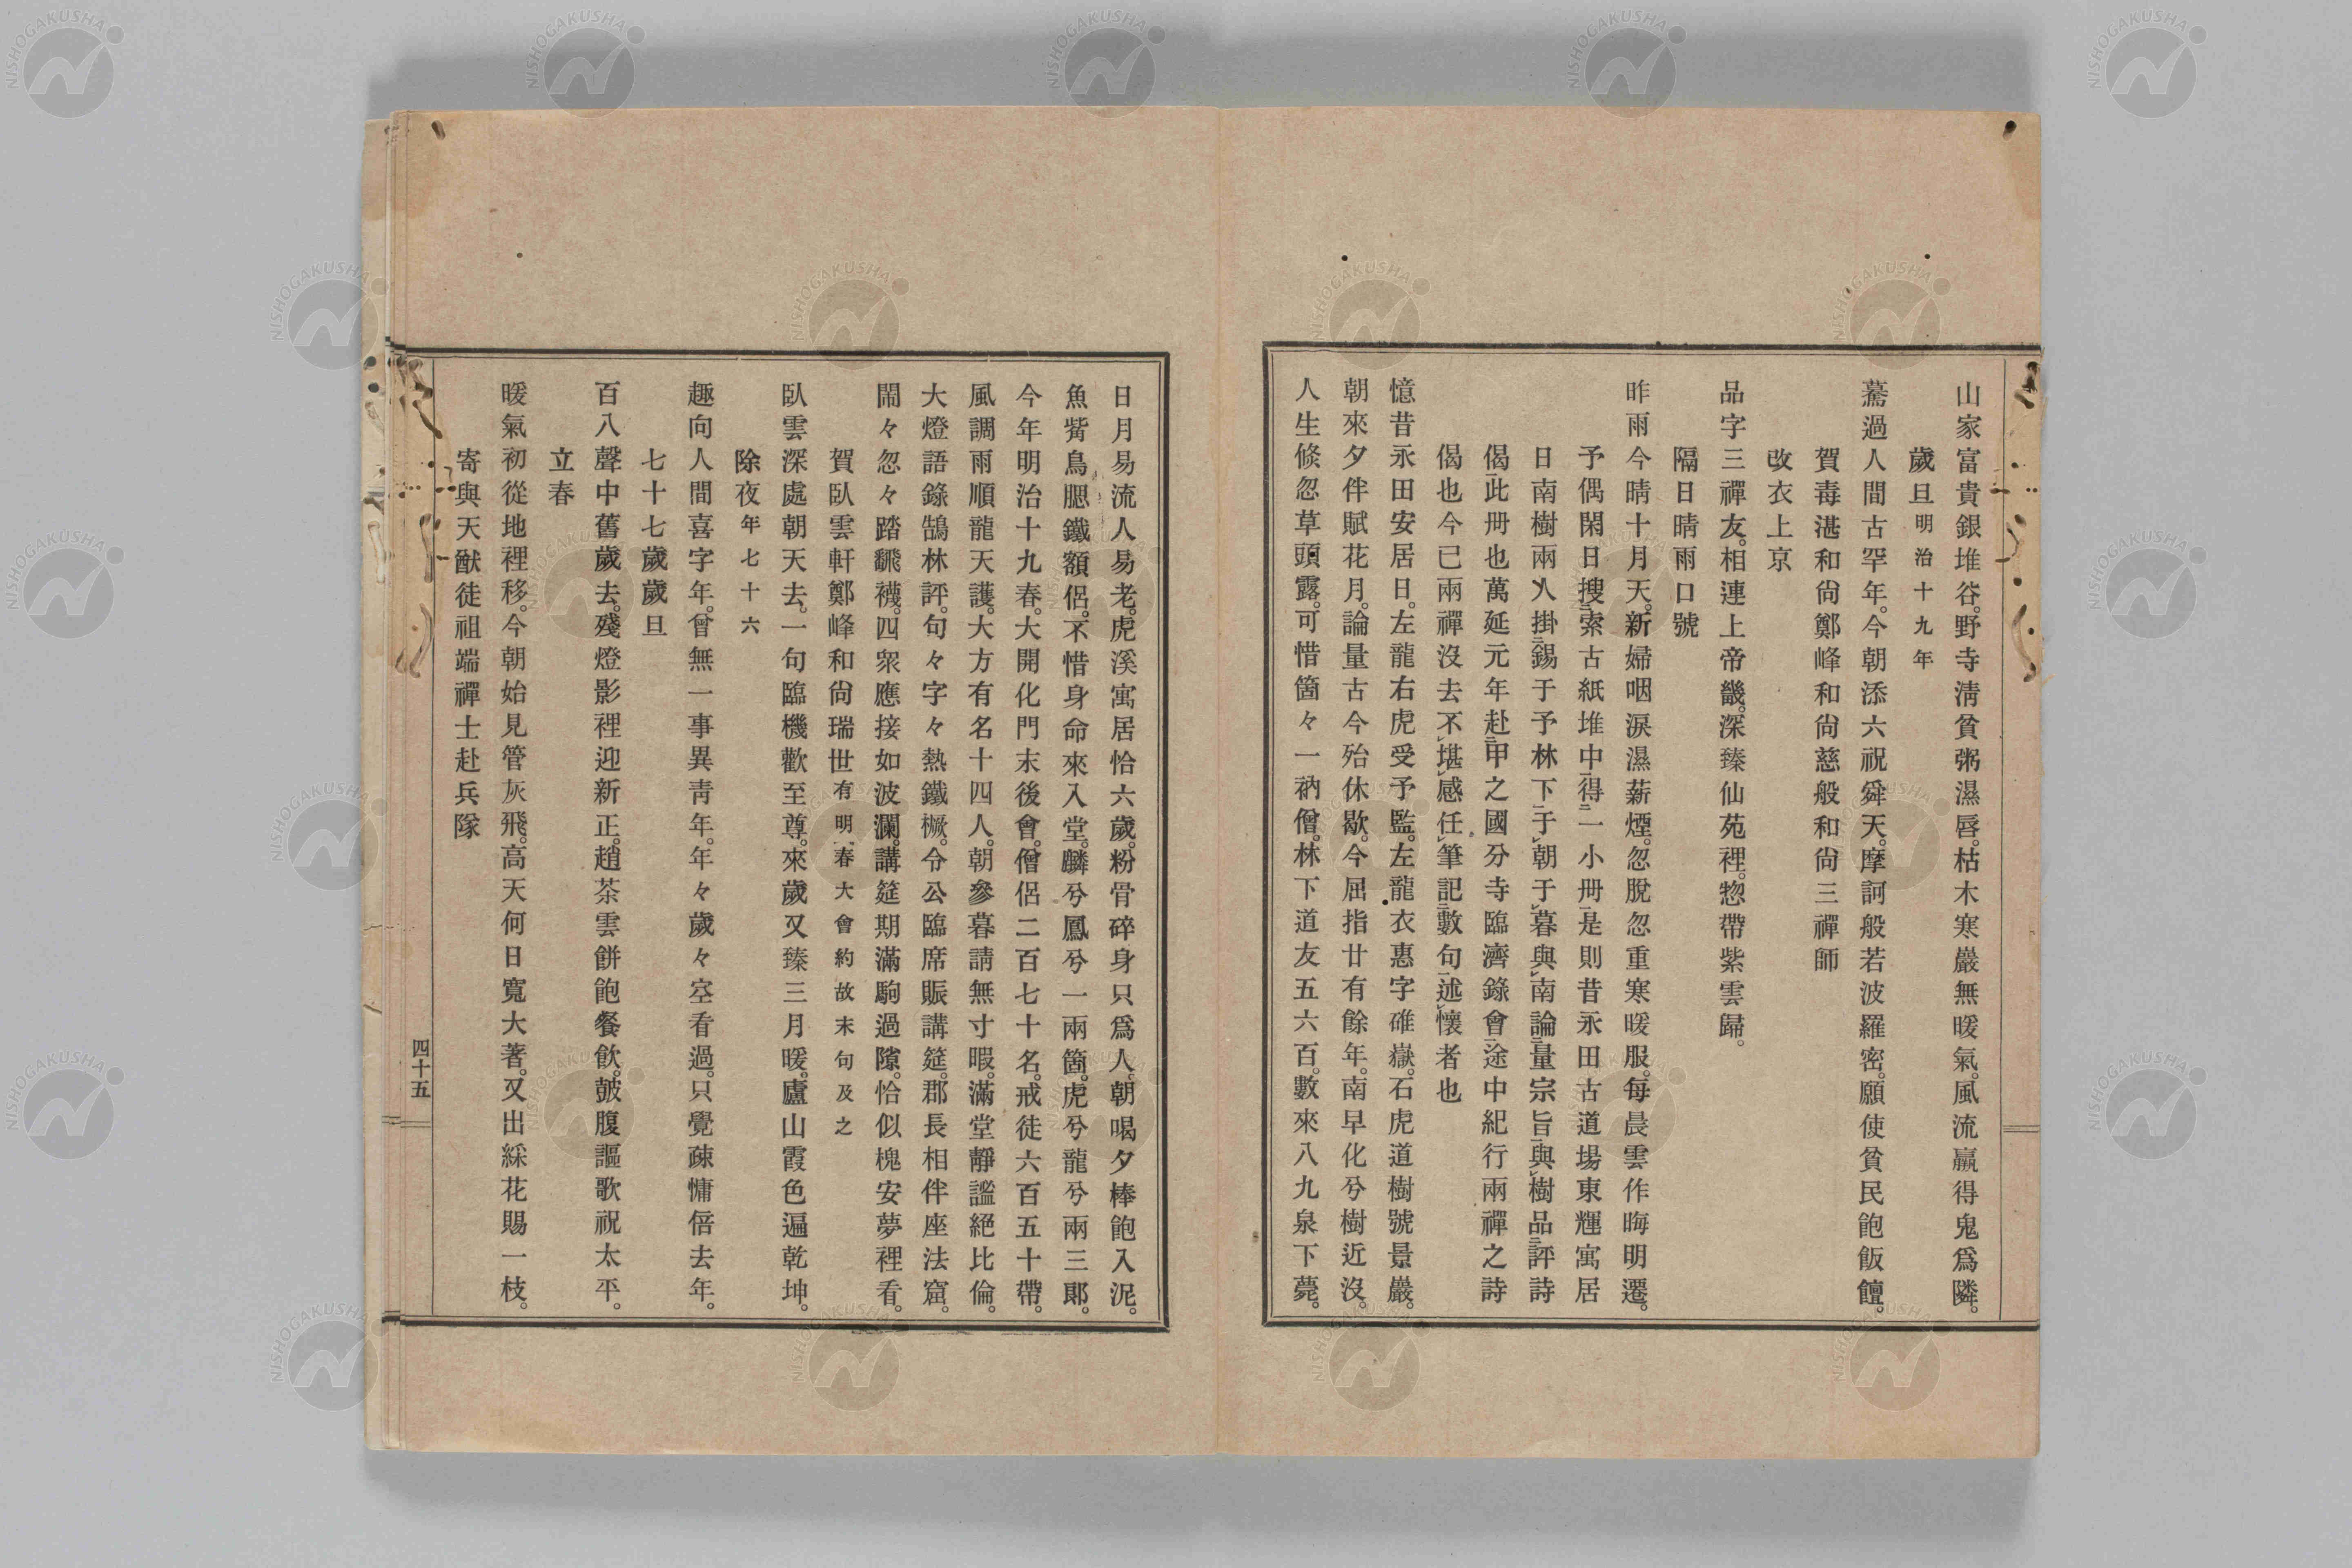 山家富貴銀堆谷。野寺淸貧粥濕唇。枯木寒巖無暖氣。風流贏得鬼爲隣。
歲旦明治十九年
驀過人間古罕年。今朝添六祝舜天。摩訶般若波羅密。願使貧民飽飯饘。
賀毒湛和尙鄭峰和尙慈般和尙三禪師
改衣上京
品字三禪友。相連上帝畿。深臻仙苑裡。惣帶紫雲歸。
隔日晴雨口號
昨雨今晴十月天。新婦咽淚濕薪煙。忽脫忽重寒暖服。每晨雲作晦明遷。
予偶閑日搜索古紙堆中得一小冊是則昔永田古道場東輝寓居
日南樹兩人掛錫于予林下于朝于暮與南論量宗旨與樹品評詩
偈此冊也萬延元年赴甲之國分寺臨濟錄會途中紀行兩禪之詩
偈也今已兩禪沒去不堪感任筆記數句述懷者也
憶昔永田安居日。左龍右虎受予監。左龍衣惠字碓嶽。石虎道樹號景巖。
朝來夕伴賦花月。論量古今殆休歇。今屈指廿有餘年。南早化兮樹近沒。
人生倐忽草頭露。可惜箇々一衲僧。林下道友五六百。數來八九泉下薨。
日月易流人易老。虎溪寓居恰六歲。粉骨碎身只爲人。朝喝夕棒飽入泥。
魚觜鳥腮鐵額侶。不惜身命來入堂。麟兮鳳兮一兩箇。虎兮龍兮兩三郞。
今年明治十九春。大開化門末後會。僧侶二百七十名。戒徒六百五十帶。
風調雨順龍天護。大方有名十四人。朝參暮請無寸暇。滿堂靜謐絕比倫。
大燈語錄鵠林評。句々字々熱鐵橛。令公臨席賑講筵。郡長相伴座法窟。
鬧々忽々踏飜襪。四衆應接如波瀾。講筵期滿駒過隙。恰似槐安夢裡看。
賀臥雲軒鄭峰和尙瑞世有明春大會約故末句及之
臥雲深處朝天去。一句臨機歡至尊。來歲又臻三月暖。廬山霞色遍乾坤。
除夜年七十六
趣向人間喜字年。曾無一事異靑年。年々歲々空看過。只覺疎慵倍去年。
七十七歲歲旦
百八聲中舊歲去。殘燈影裡迎新正。趙茶雲餅飽餐飮。皷腹謳歌祝太平。
立春
暖氣初從地裡移。今朝始見管灰飛。高天何日寬大著。又出綵花賜一枝。
寄與天猷徒祖端禪士赴兵隊
四十五